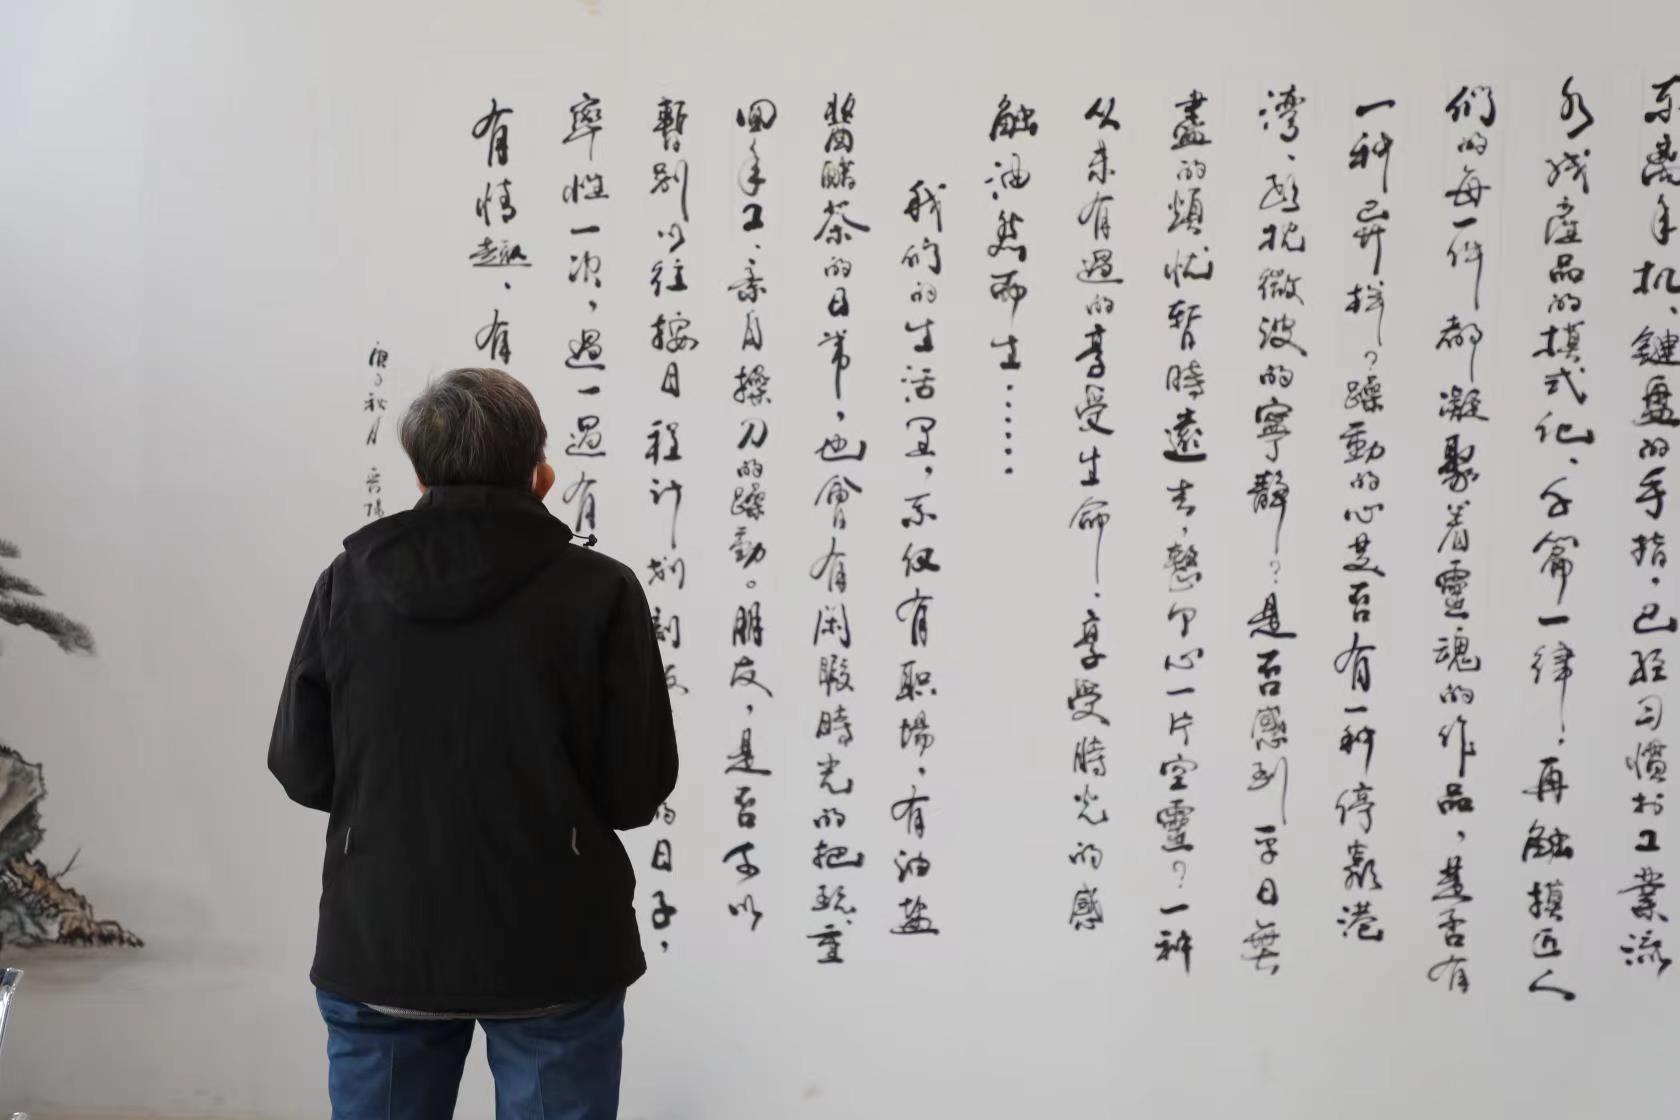 不离手机、鍵盘的手指，已经习慣於工業流
水线產品的模式化、千篇一律！再触摸匠人
们的每一件都凝聚着靈魂的作品，是否有
一种异样？躁動的心是否有一种停靠港
湾、超枕微波的寧静？是否感到平日無
盡的煩忧暂時遠去，整个心一片空靈？一种
从未有過的享受生命、享受時光的感
触油然而生……
我们的生活里，不仅有职場，有油盐
醬醋茶的日常，也會有闲暇時光的把玩。重
回手工、亲自操刀的躁動。朋友，是否可以
暫别以往按日程计划刻板的日子，
率性一次，過一過有
有情趣、有
庚子秋月